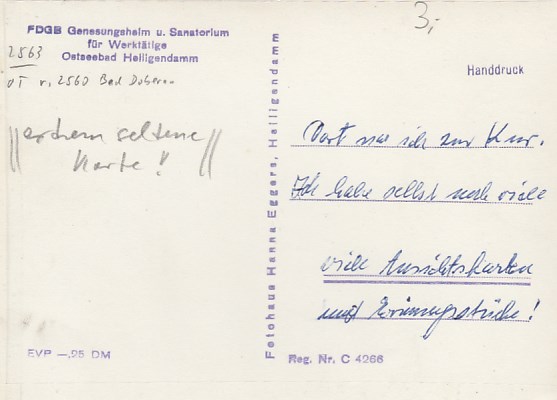 3,-
FDGB Genesungsheim u. Sanatorium
für Werktätige
Ostseebad Heiligendamm
2563
OT v. 2560 Bad Doberan
Handdruck
//extrem seltene
Karte!//
Fotohaus Hanna Eggers, Heiligendamm
Dort war ich zur Kur.
Ich habe selbst noch viele
viele Ansichtskarten
und Erinnerungsstücke!
EVP —,95 DM
Reg. Nr. C 4266